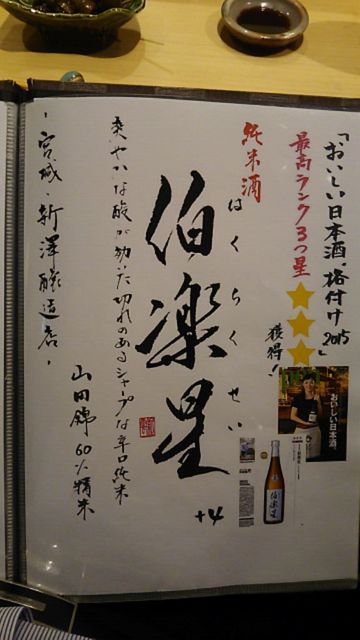 「おいしい日本酒、格付け2015」
最高ランク3つ星
獲得！
おいしい日本酒。
純米酒
はくらくせい
伯楽星
+4
伯楽星
爽やかな酸が効いた切れのあるシャープな辛口純米
山田錦 60%精米
・宮城・新澤醸造店・